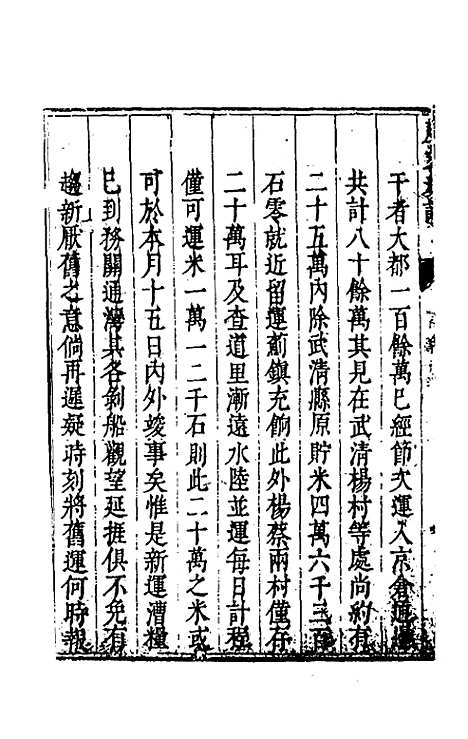 干者大都一百餘萬已經節次運入京倉通
共計八十餘萬其見在武清楊村等處尚約有
二十五萬內除武清縣原貯米四萬六千三百
石零就近留運薊鎮充餉此外楊蔡兩村僅存
二十萬耳及查道里漸遠水陸並運每日計程
僅可運米一萬一二千石則此二十萬之米或
可於本月十五日內外竣事矣惟是新運漕糧
已到務關通灣其各剝船觀望延捱俱不免有
趨新厭舊之意倘再遲疑時刻將舊運何時報